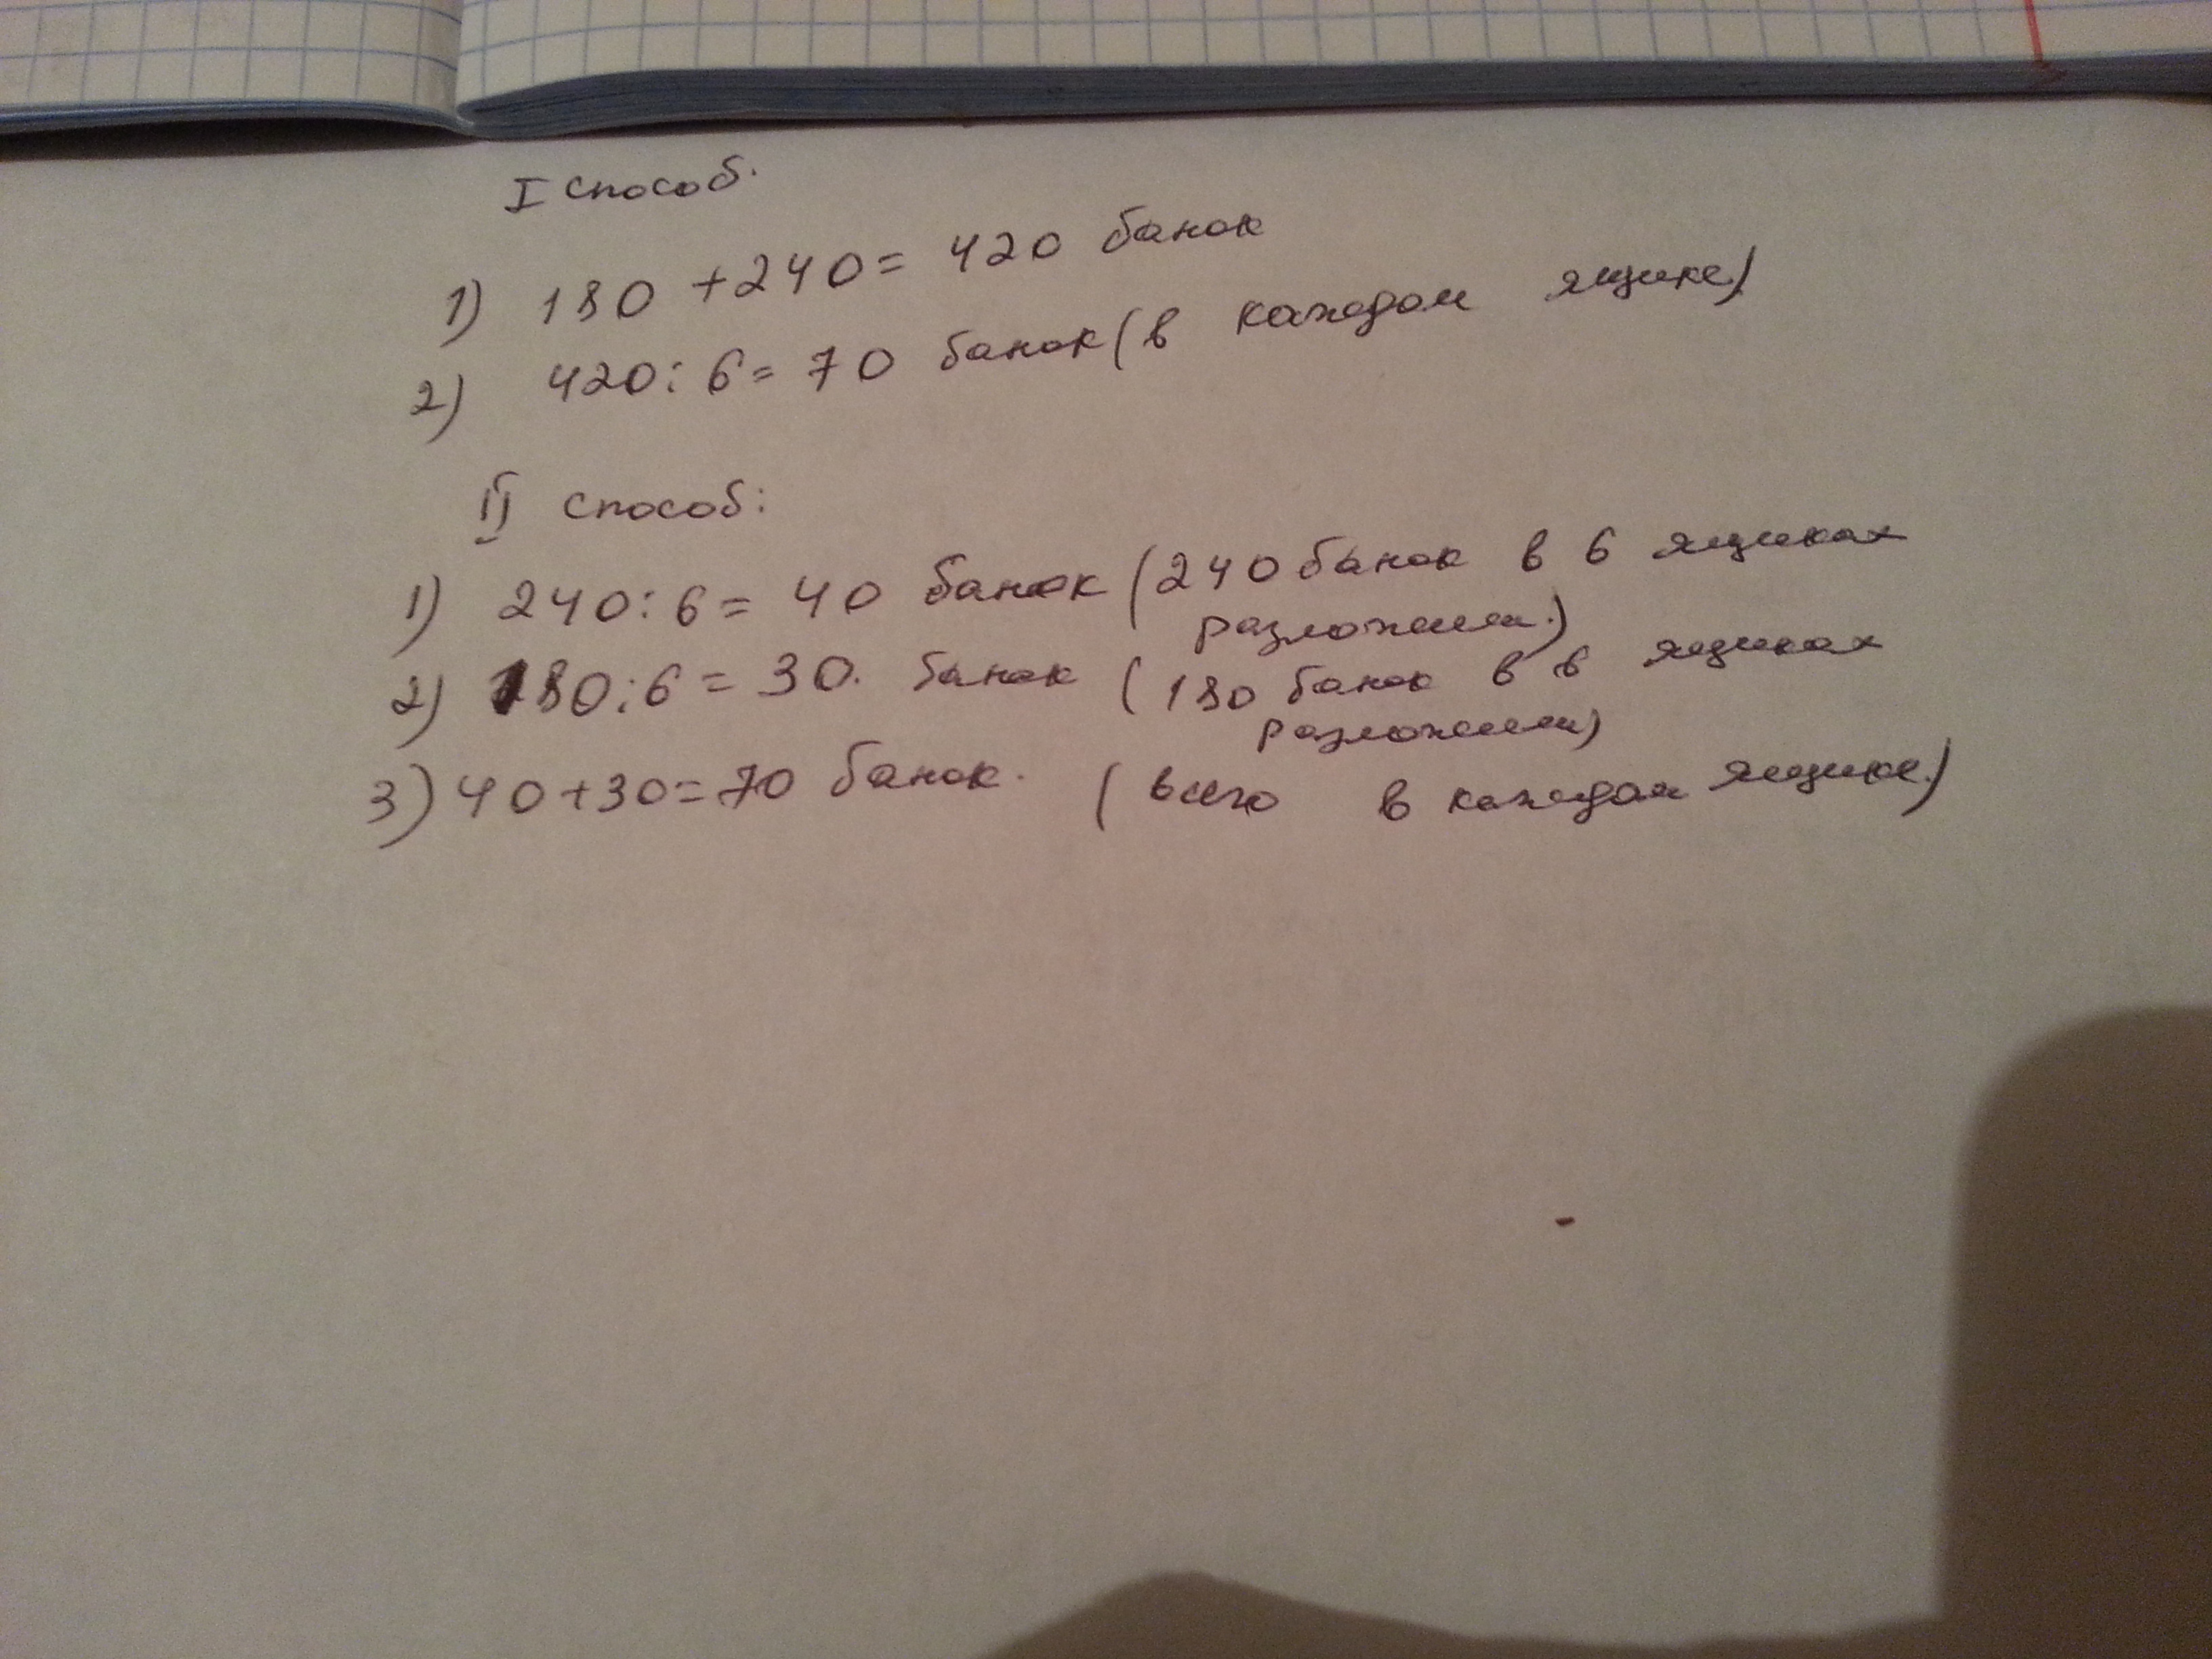 I способ.
1) 180 + 240 = 420 банок
2) 420 : 6 = 70 банок (в каждом ящике)
II способ:
1) 240 : 6 = 40 банок (240 банок в 6 ящиках
разложили.)
2) 180 : 6 = 30. банок (180 банок в 6 ящиках
разложили)
3) 40 + 30 = 70 банок. (всего в каждом ящике.)